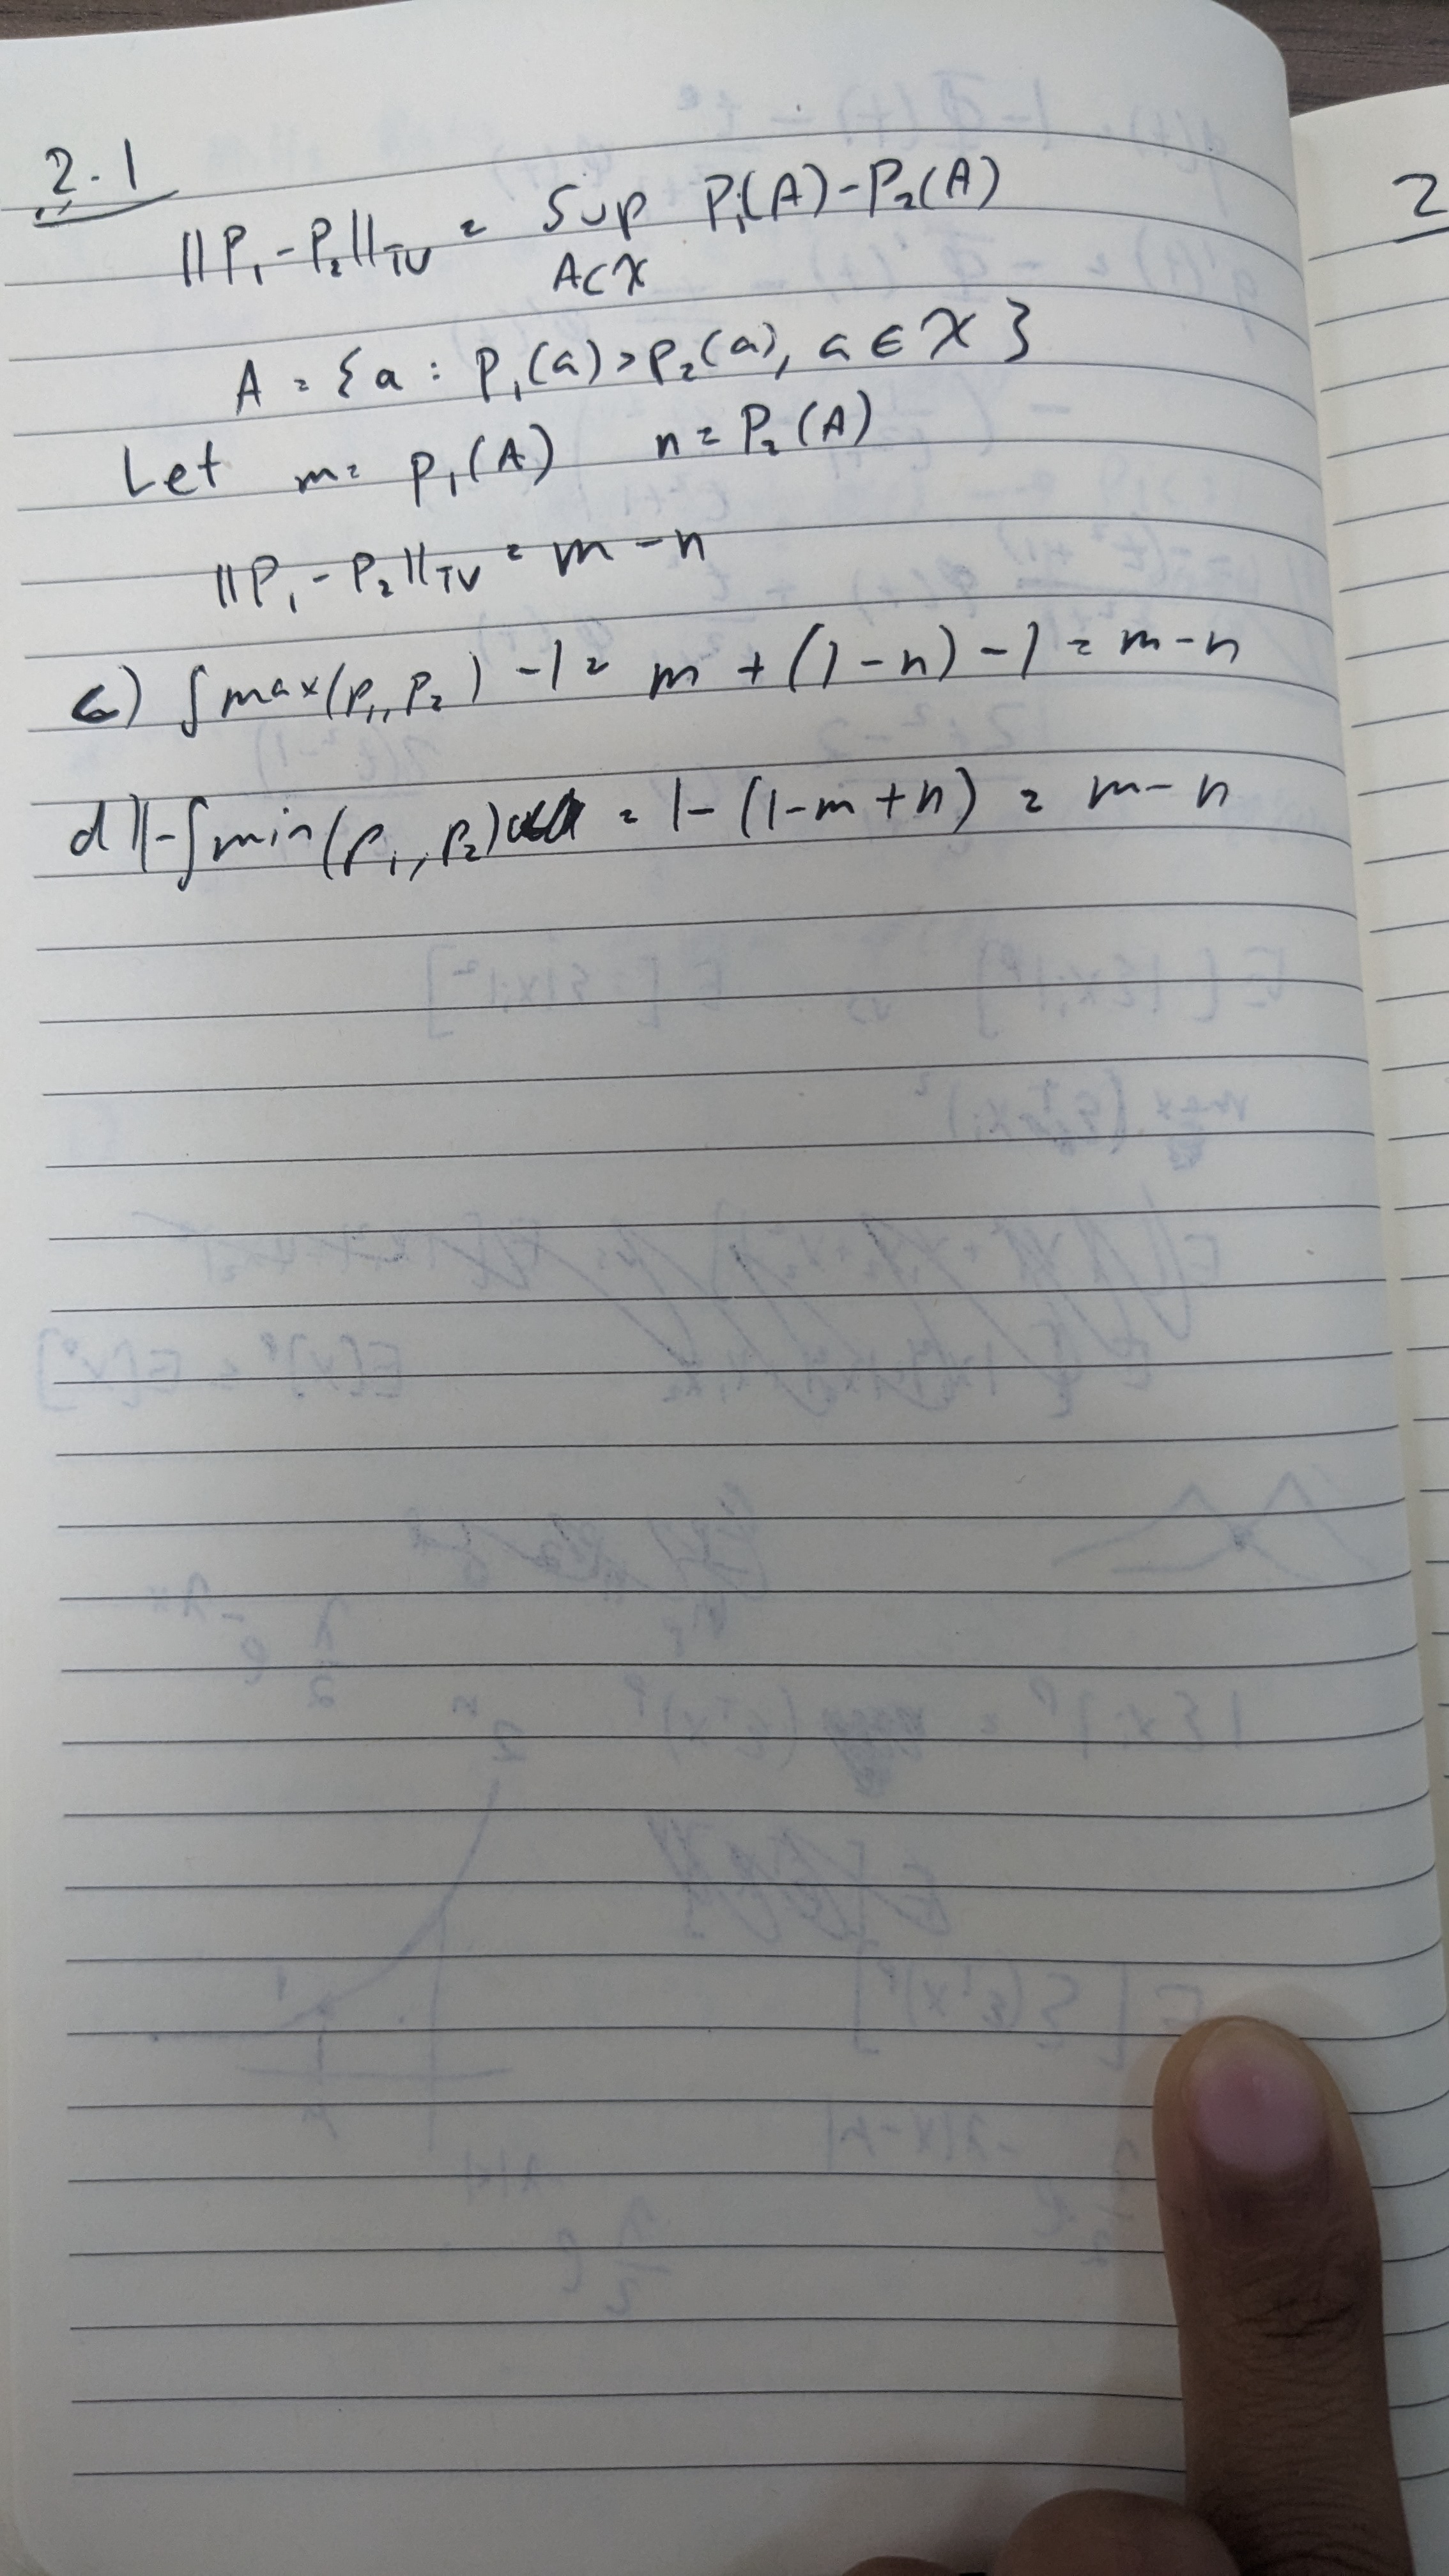 2.1
||P₁ - P₂||TV = Sup P₁(A) - P₂(A)
A⊂X
A = {a : P₁(a) > P₂(a), a ∈ X}
Let m = P₁(A) n = P₂(A)
||P₁ - P₂||TV = m - n
c) ∫max(P₁, P₂) - 1 = m + (1 - n) - 1 = m - n
d) 1 - ∫min(P₁, P₂) = 1 - (1 - m + n) = m - n
2